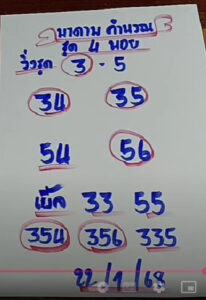 มาดาม คำนวณ
ชุด 4 นอย
วิ่งรูด 3 - 5
34 35
54 56
เบิ้ล 33 55
354 356 335
22/1/68